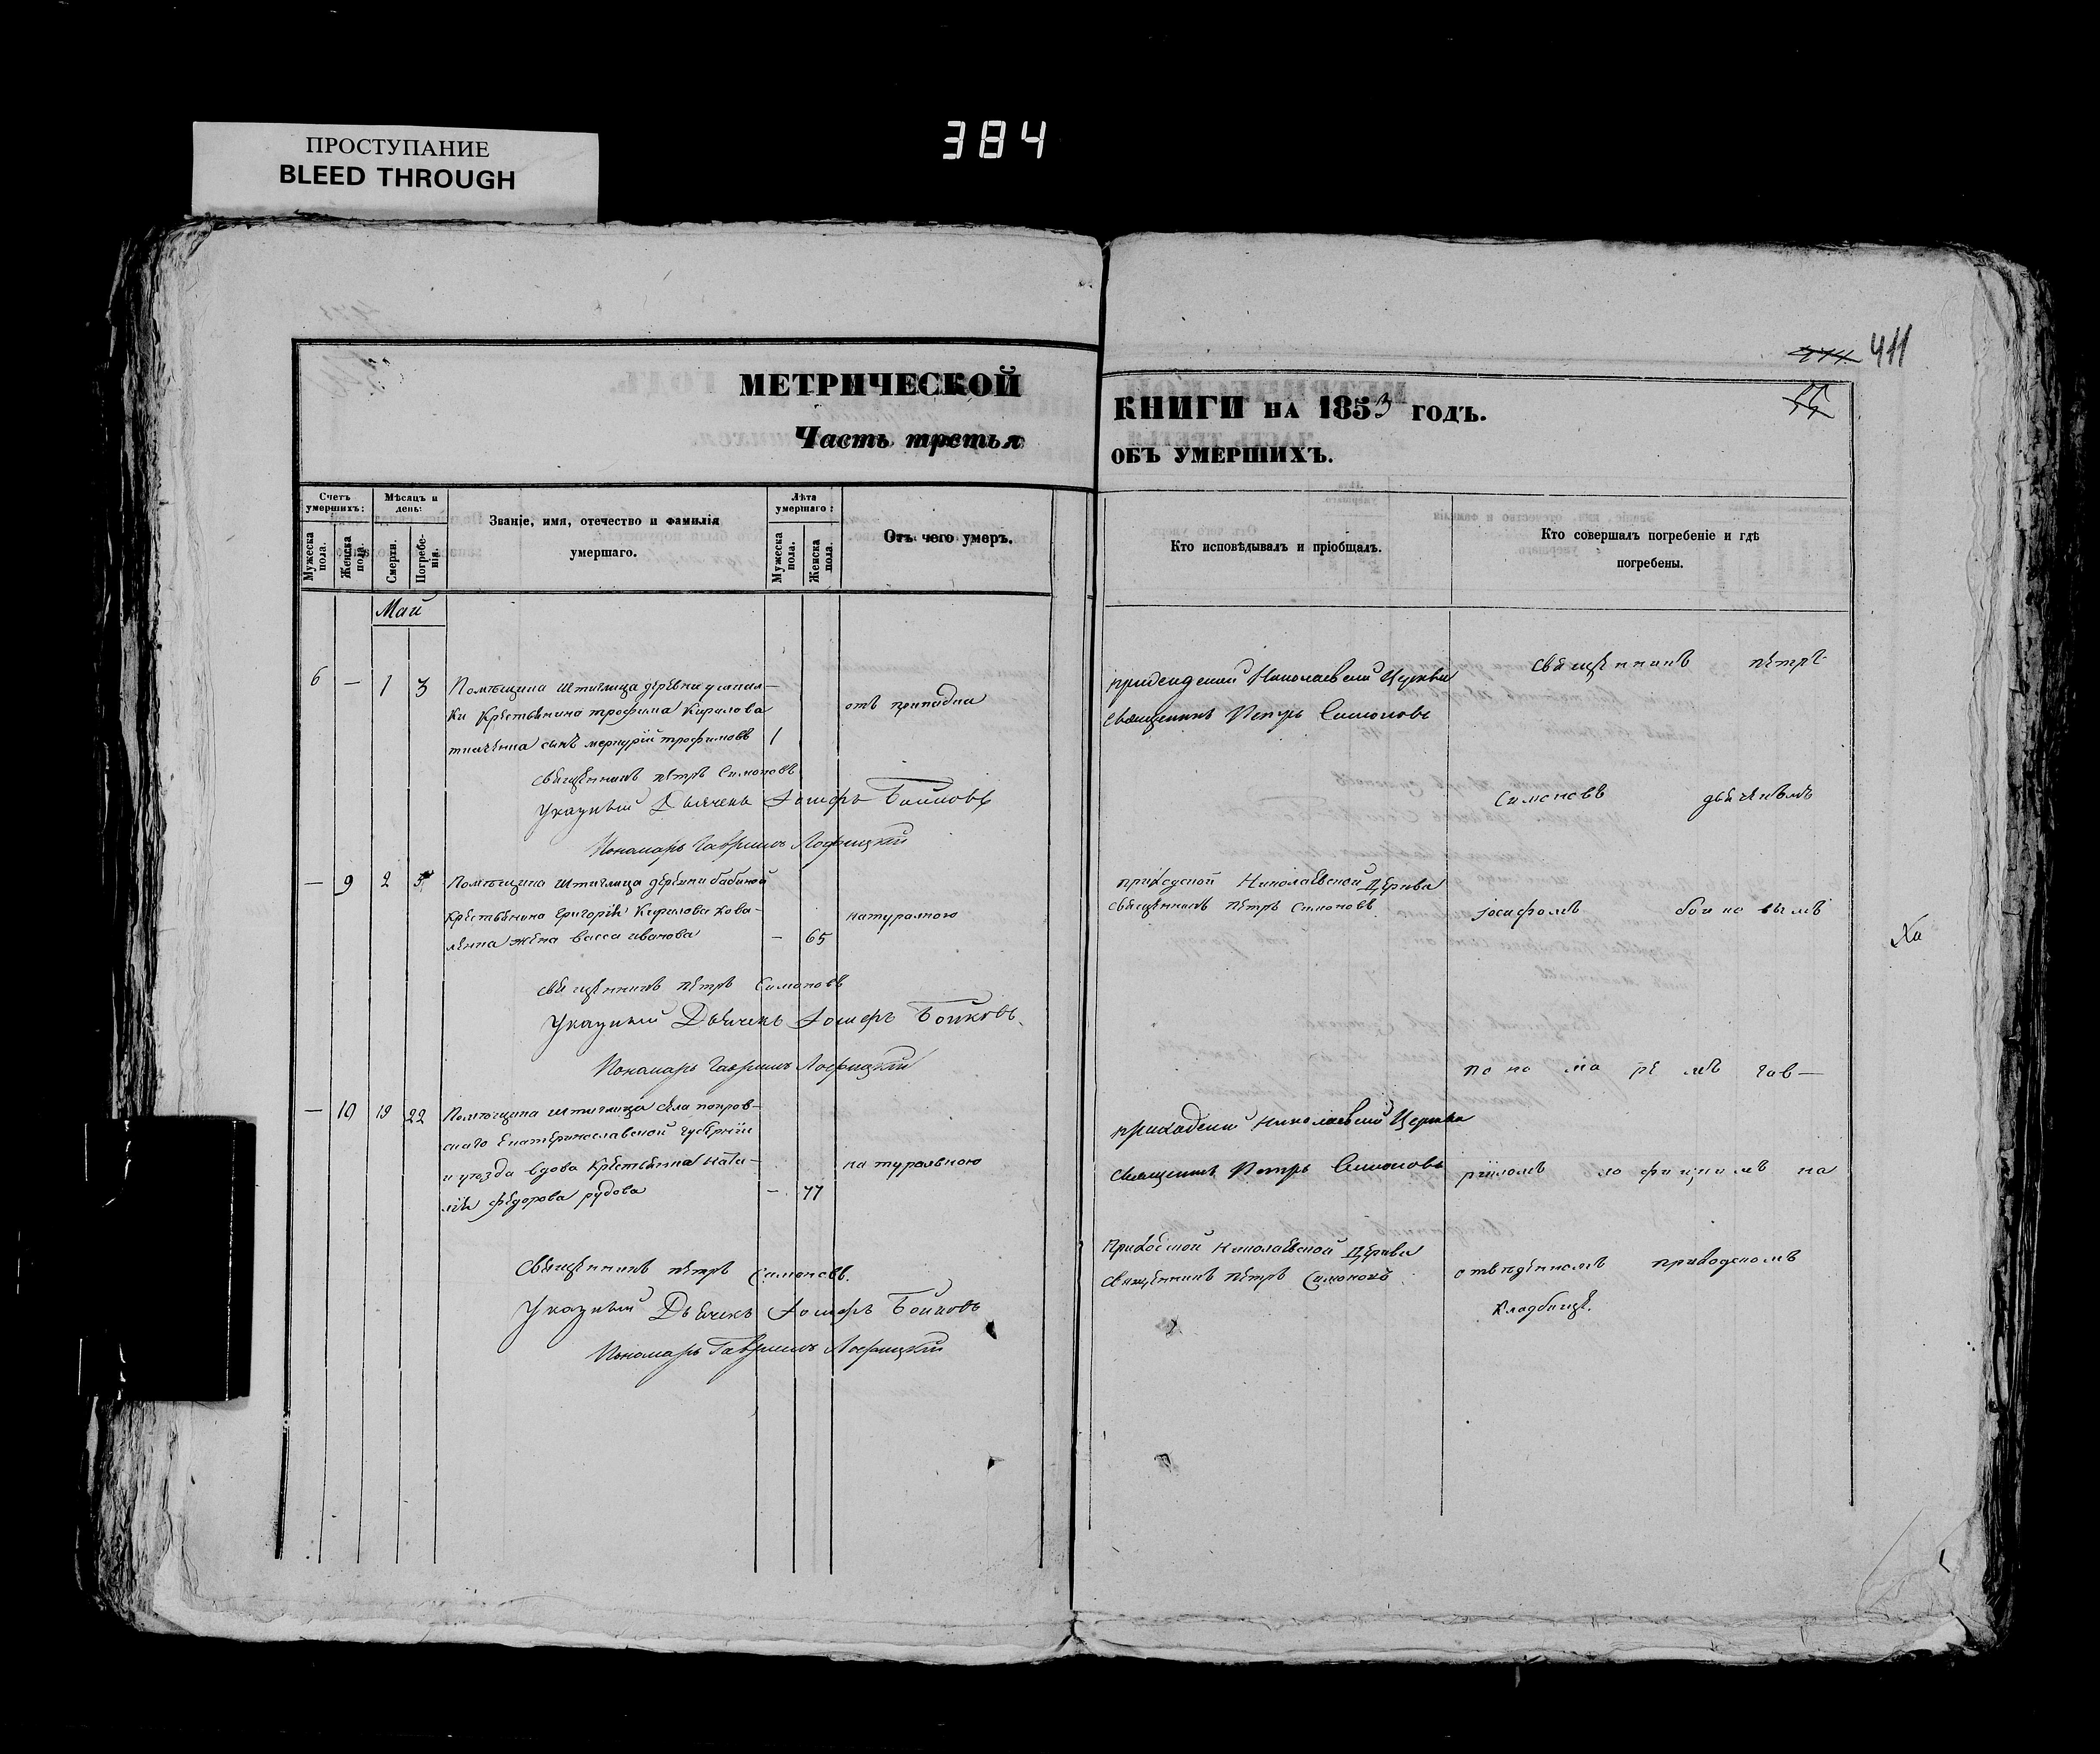 384
ПРОСТУПАНИЕ
BLEED THROUGH
411
МЕТРИЧЕСКОЙ
Часть третья
КНИГИ НА 1853 ГОДЪ.
ОБЪ УМЕРШИХЪ.
Счетъ умершихъ:
Мужеска пола.
Женска пола.
Мѣсяцъ и день:
Смерти.
Погребенія.
Званіе, имя, отечество и фамилія
умершаго.
Лѣта умершаго:
Мужеска пола.
Женска пола.
Отъ чего умеръ.
Кто исповѣдывалъ и пріобщалъ.
Кто совершалъ погребеніе и гдѣ
погребены.
Май
6 — 1 3
Помѣщика штиглица деревни
ки крестьянина трофима Кирилова
сынъ меркурій трофимовъ 1
отъ припадка
священникъ петръ Симоновъ
Указный Дьячекъ Іосифъ Бойковъ
Пономарь Гавріилъ Лофицкій
приходской Николаевской Церкви
священникъ Петръ Симоновъ
— 9 2 5
Помѣщика штиглица деревни бабиной
крестьянина григорія Кирилова кова-
ленка жена васса иванова — 65
натуралною
священникъ петръ Симоновъ
Указный Дьячекъ Іосифъ Бойковъ
Пономарь Гавріилъ Лофицкій
приходской Николаевской Церкви
священникъ петръ Симоновъ
— 10 19 22
Помѣщика штиглица села покров-
скаго екатеринославской губерніи
и уѣзда вдова крестьянка ната-
лія федорова рудова — 77
натуралною
священникъ петръ Симоновъ.
Указный Дьячекъ Іосифъ Бойковъ
Пономарь Гавріилъ Лофицкій
приходской николаевской Церкви
священникъ Петръ Симоновъ
Приходской николаевской Церкви
священникъ петръ Симоновъ
священникъ петръ
Симоновъ дьячкомъ
іосифомъ бойковымъ
пономаремъ гав—
ріиломъ лофицкимъ на
отведенномъ приходскомъ
кладбище.